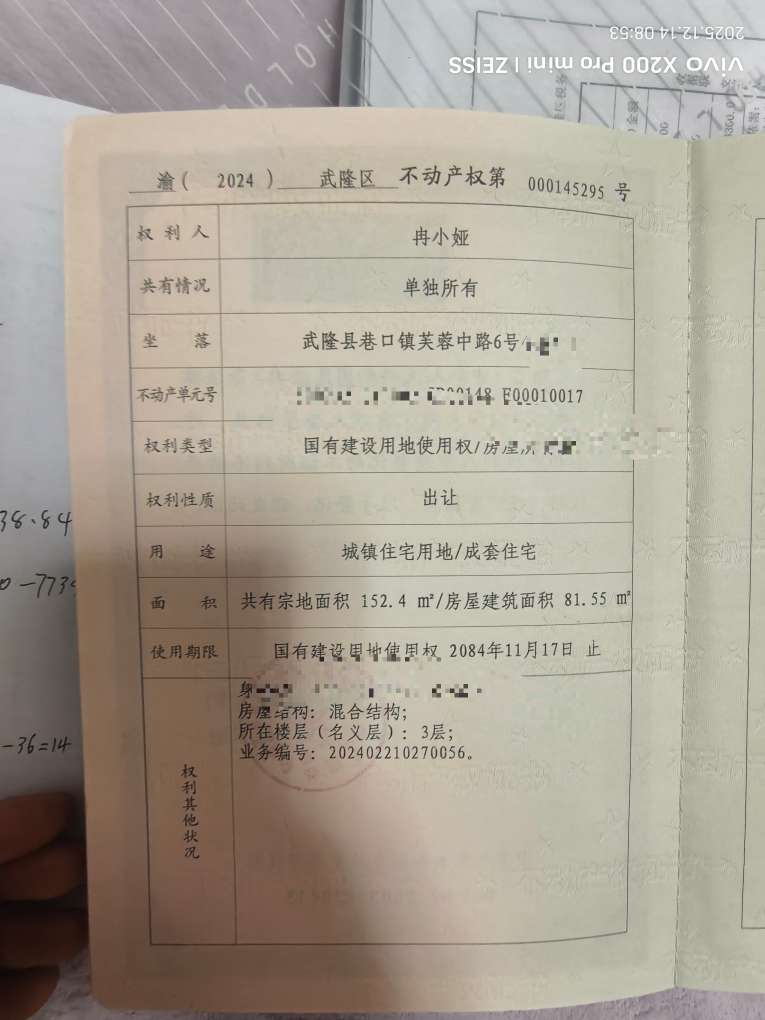 2025.12.14 08:53
vivo X200 Pro mini | ZEISS
HOLD
渝( 2024 ) 武隆区 不动产权第 000145295 号
权利人 冉小娅
共有情况 单独所有
坐落 武隆县巷口镇芙蓉中路6号
不动产单元号 F00010017
权利类型 国有建设用地使用权/房屋
权利性质 出让
用途 城镇住宅用地/成套住宅
面积 共有宗地面积 152.4 m²/房屋建筑面积 81.55 m²
使用期限 国有建设用地使用权 2084年11月17日 止
权利其他状况
身
房屋结构: 混合结构;
所在楼层(名义层): 3层;
业务编号: 202402210270056。
38.84
-36=14